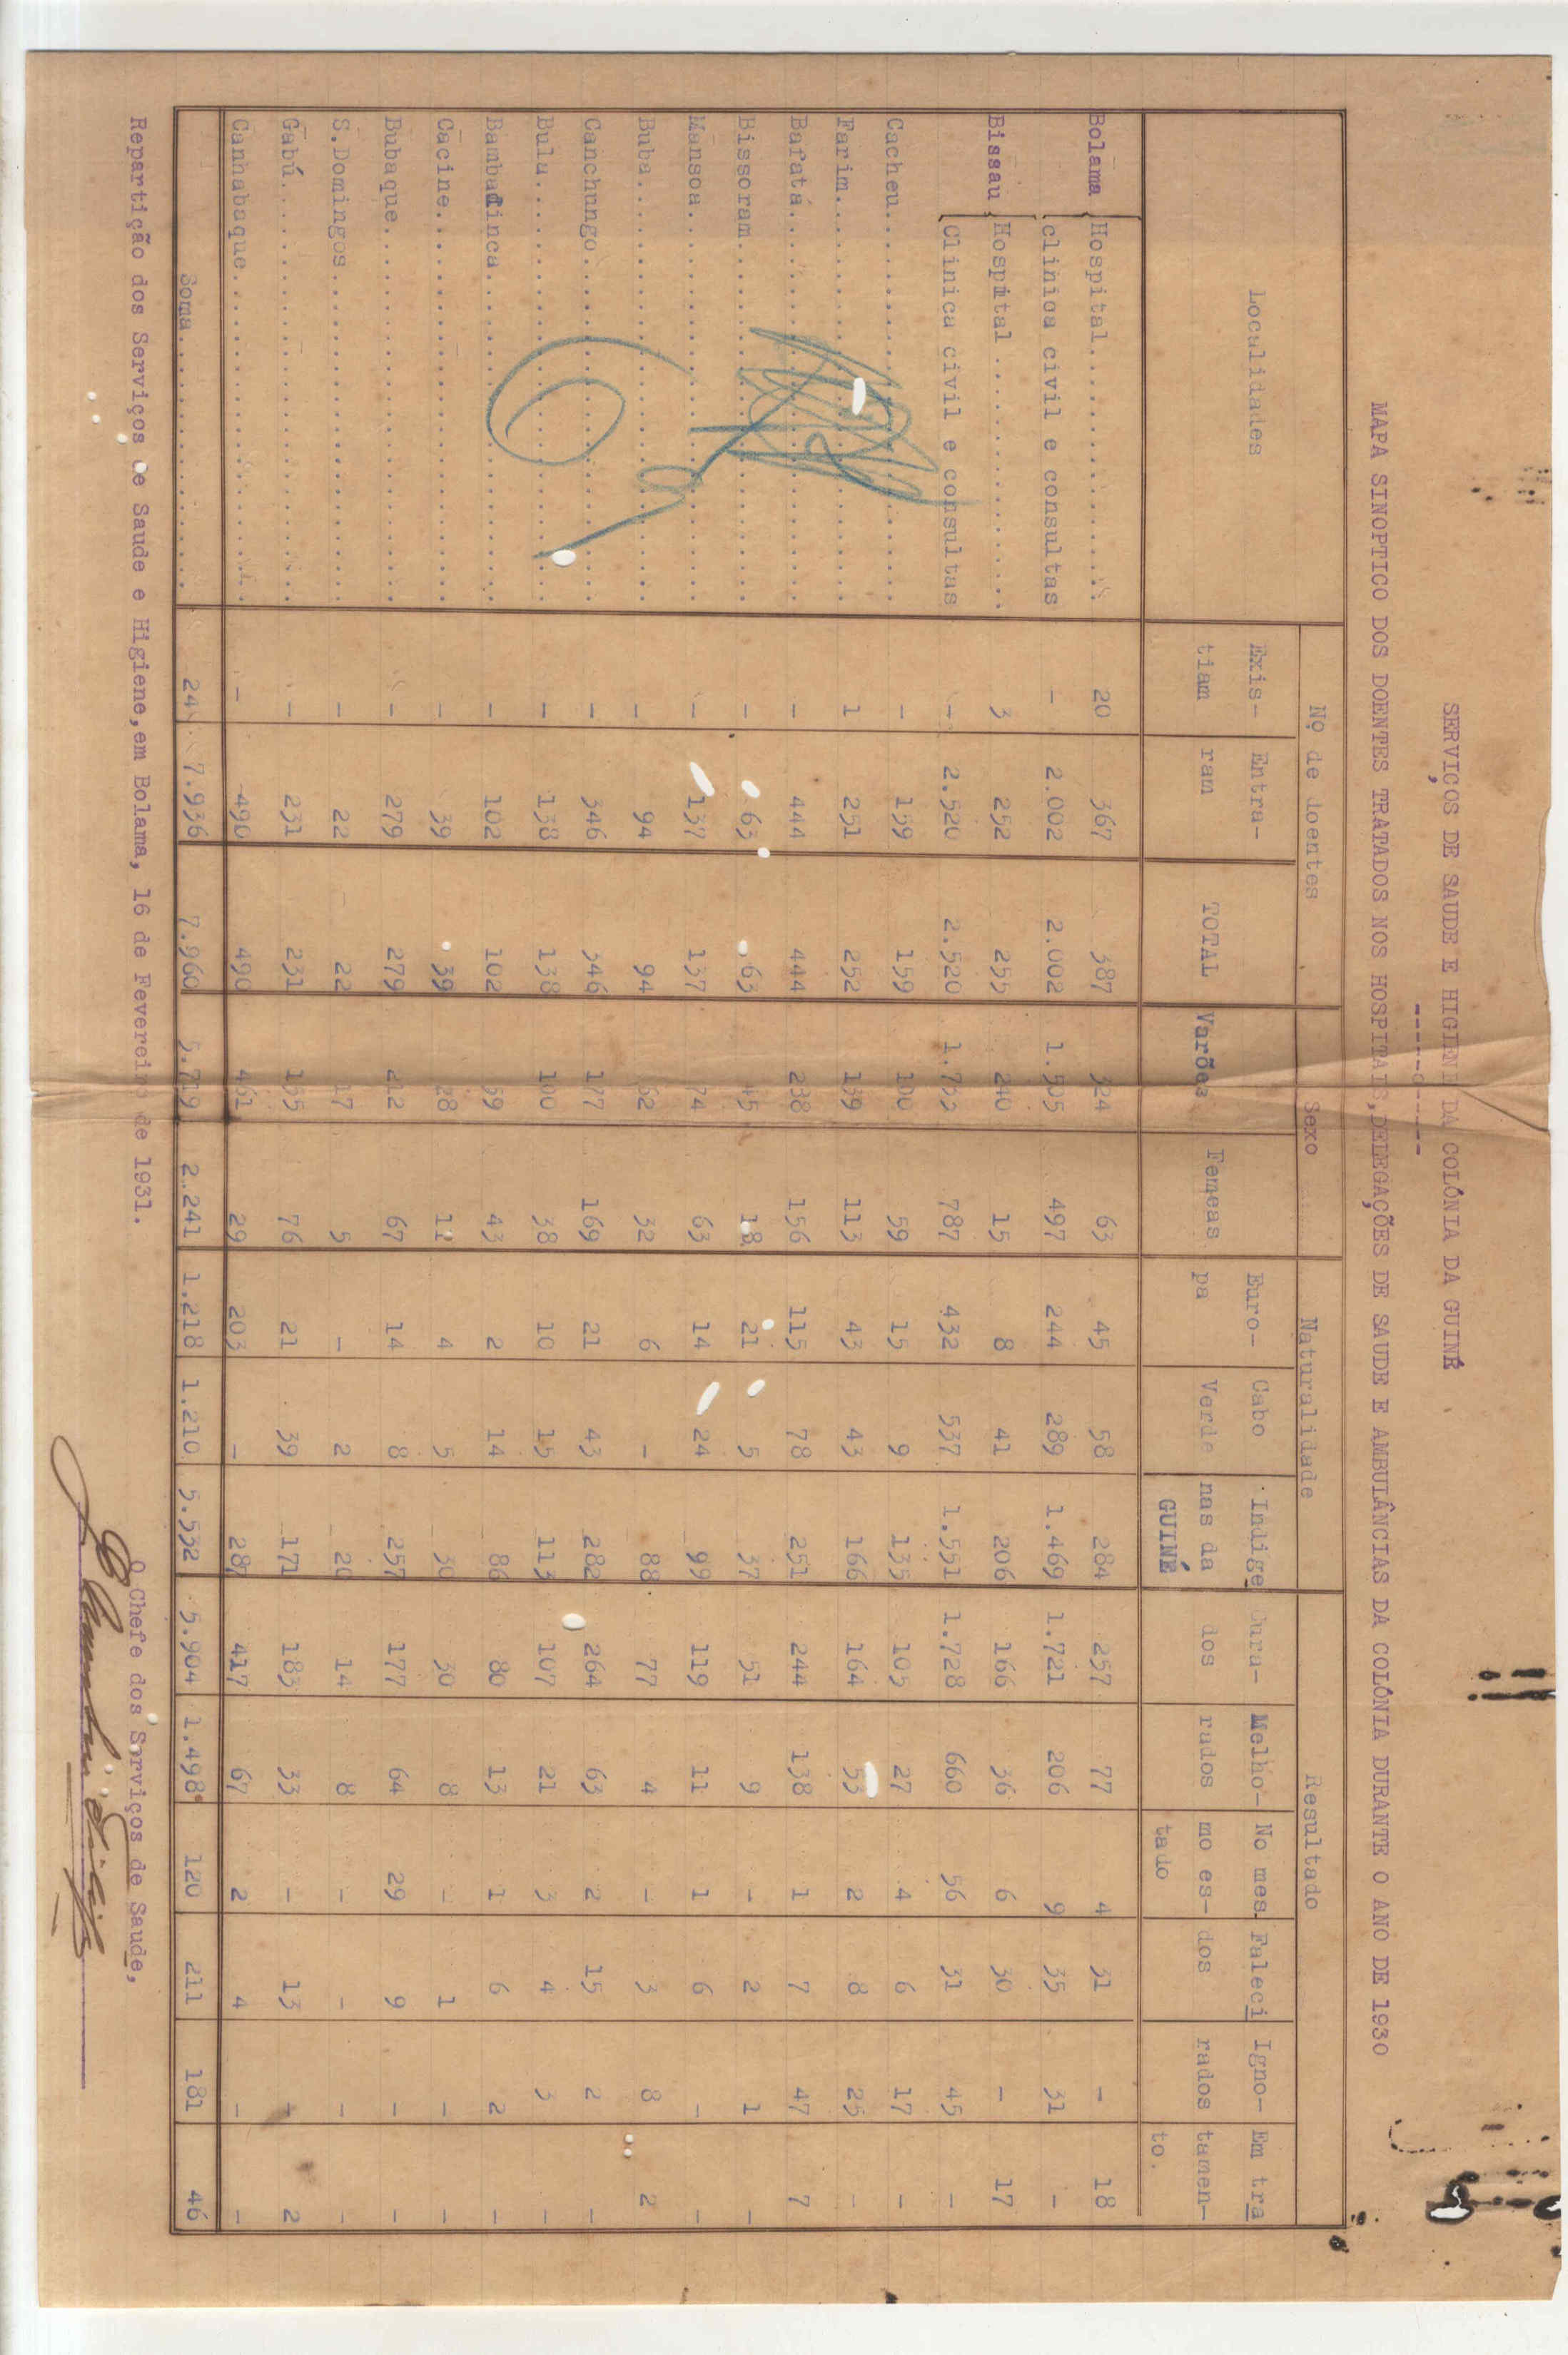 SERVIÇOS DE SAUDE E HIGIENE DA COLÔNIA DA GUINÉ
-----o-----
MAPA SINOPTICO DOS DOENTES TRATADOS NOS HOSPITAIS,DELEGAÇÕES DE SAUDE E AMBULÂNCIAS DA COLÔNIA DURANTE O ANO DE 1930
Localidades Nº de doentes Sexo Naturalidade Resultado
Exis- Entra- TOTAL Varões Femeas Euro- Cabo Indige Cura- Melho- No mes Faleci Igno- Em tra
tiam ram pa Verde nas da dos rados mo es- dos rados tamen-
GUINÉ tado to.
Bolama Hospital 20 367 387 324 63 45 58 284 257 77 4 31 - 18
clinica civil e consultas - 2.002 2.002 1.505 497 244 289 1.469 1.721 206 9 35 31 -
Bissau Hospital 3 252 255 240 15 8 41 206 166 36 6 30 - 17
Clinica civil e consultas - 2.520 2.520 1.733 787 432 537 1.551 1.728 660 56 31 45 -
Cacheu - 159 159 100 59 15 9 135 105 27 4 6 17 -
Farim 1 251 252 139 113 43 43 166 164 53 2 8 25 -
Bafatá - 444 444 238 156 115 78 251 244 138 1 7 47 7
Bissoram - 63 63 45 18 21 5 37 51 9 - 2 1 -
Mansoa - 137 137 74 63 14 24 99 119 11 1 6 - -
Buba - 94 94 62 32 6 - 88 77 4 - 3 8 2
Canchungo - 346 346 177 169 21 43 282 264 63 2 15 2 -
Bula - 138 138 100 38 10 15 113 107 21 3 4 3 -
Bambadinca - 102 102 59 43 2 14 86 80 13 1 6 2 -
Cacine - 39 39 28 11 4 5 30 30 8 - 1 - -
Bubaque - 279 279 212 67 14 8 257 177 64 29 9 - -
S.Domingos - 22 22 17 5 - 2 20 14 8 - - - -
Gabú - 231 231 155 76 21 39 171 183 33 - 13 - 2
Canhabaque - 490 490 461 29 203 - 287 417 67 2 4 - -
Soma 24 7.936 7.960 5.719 2.241 1.218 1.210 5.532 5.904 1.498 120 211 181 46
Repartição dos Serviços de Saude e Higiene,em Bolama, 16 de Fevereiro de 1931.
O Chefe dos Serviços de Saude,